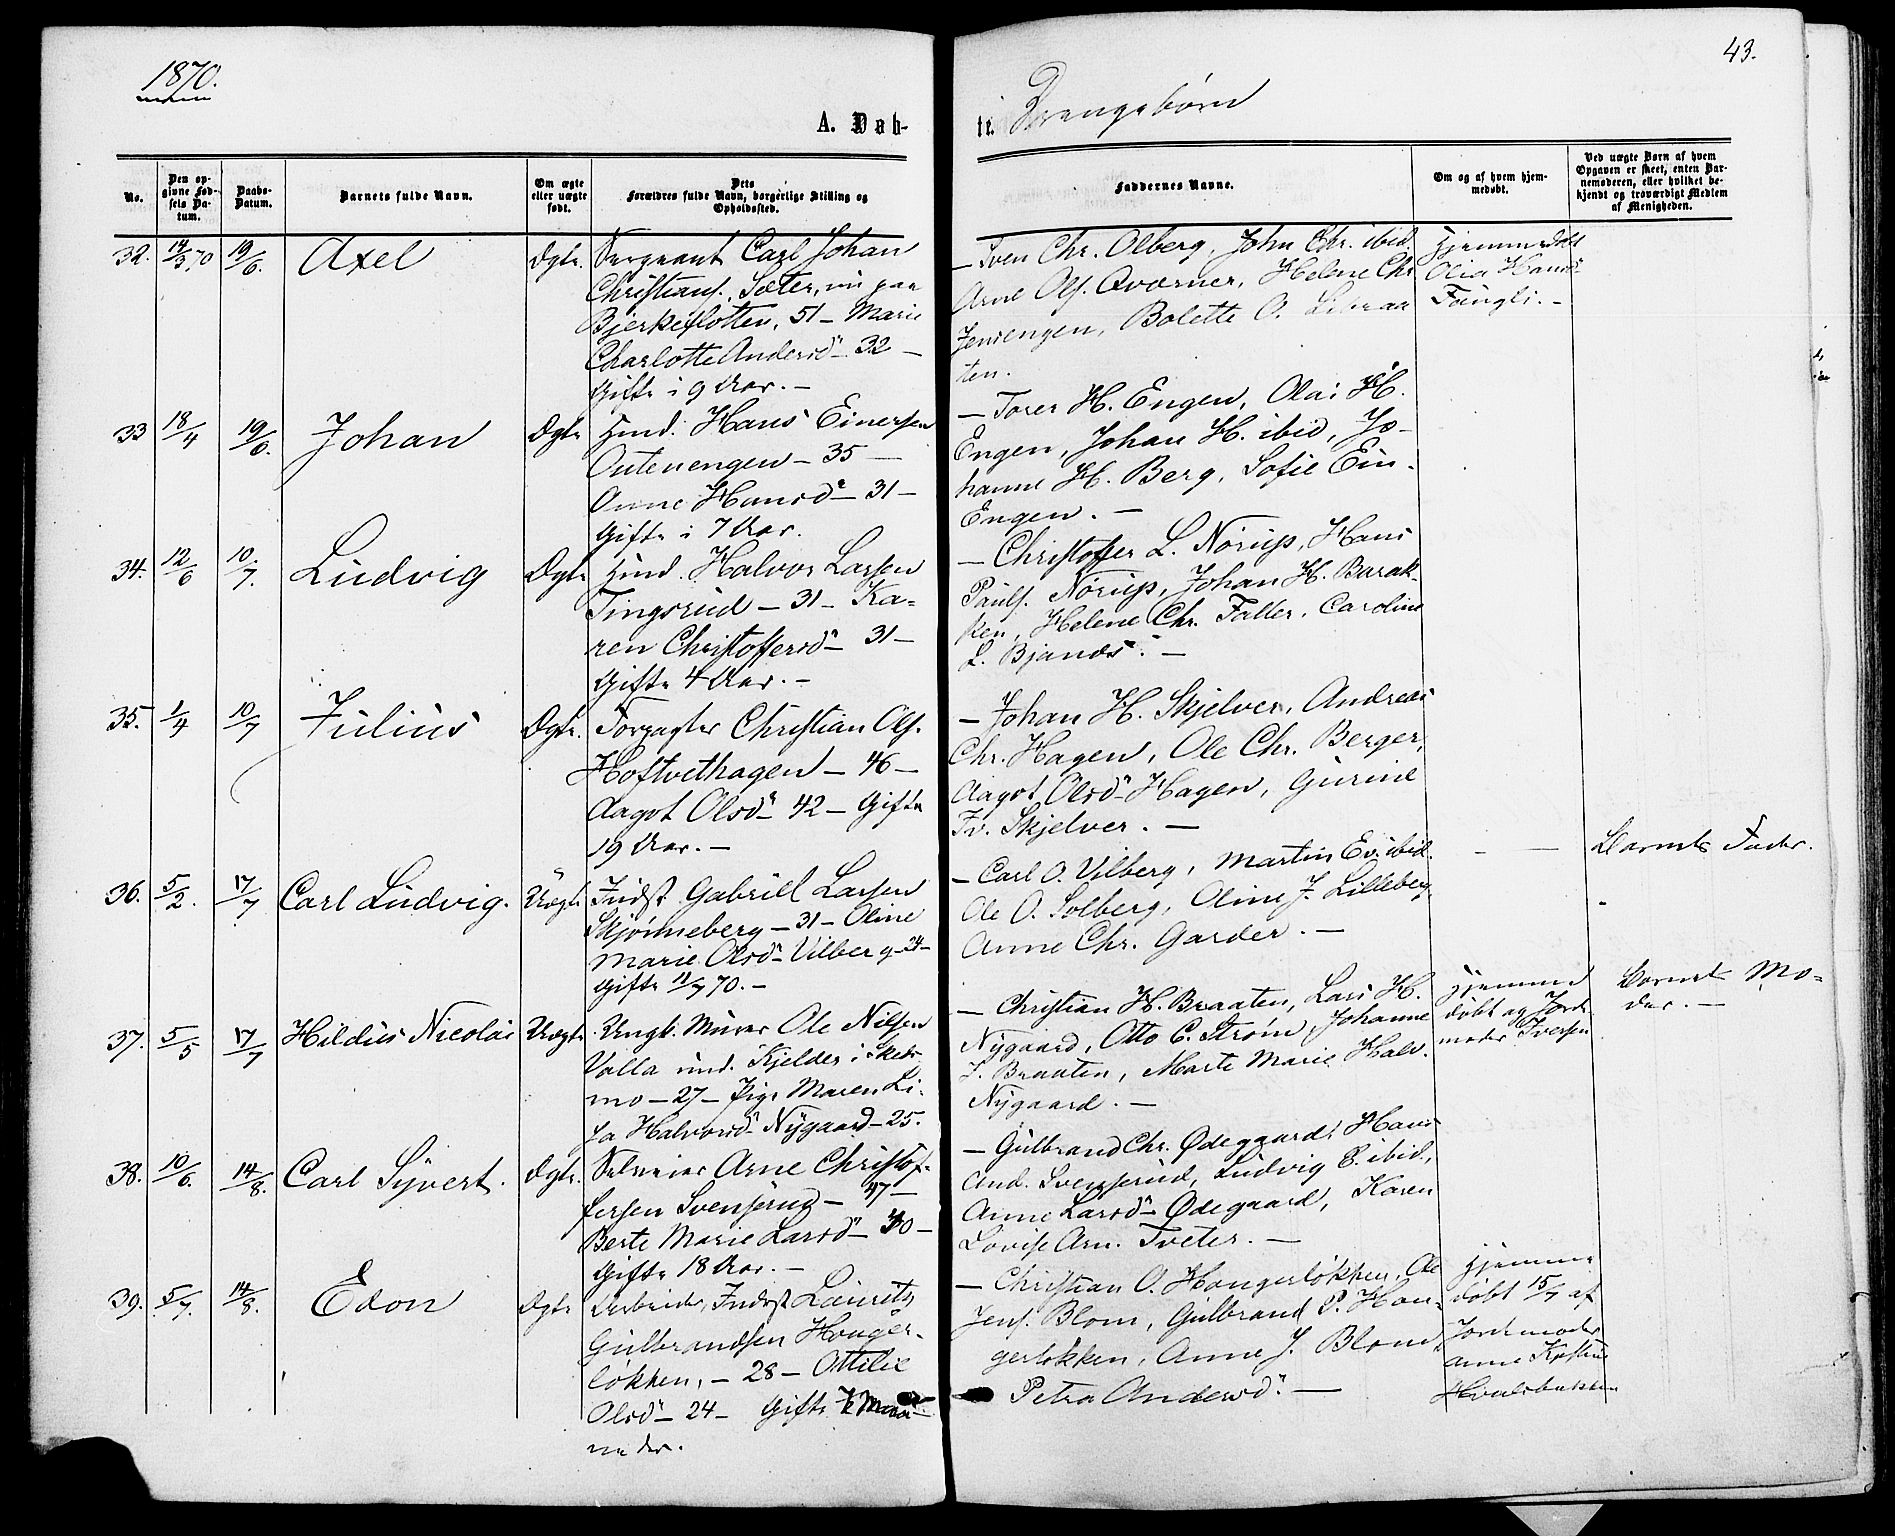 1870.
43.
A. Døb-
te. Drengebørn
No.
Den op-
givne Fød-
sels Da-
tum.
Daabs-
Datum.
Barnets fulde Navn.
Om ægte
eller uægte
født.
Dets
Forældres fulde Navn, borgerlige Stilling og
Opholdssted.
Faddernes Navne.
Om og af hvem hjem-
medøbt.
Ved uægte Børn af hvem
Opgaven er skeet, enten Bar-
nemoderen, eller hvilket be-
kjendt og troværdigt Medlem
af Menigheden.
32. 14/3 70 19/6. Axel Ægte. Sergeant Carl Johan
Christians. Sæter, nu paa
Bjerkeslotten, 51 – Marie
Charlotte Andersd – 32 –
Gifte i 9 Aar. –
– Sven Chr. Olberg, John Chr. ibid.
Arne Ols. Qværner, Helene Chr
Jensengen, Bolette O.
ten.
Hjemmedøbt
Olia Hansd
Fangli. –
33 18/4 19/6. Johan Ægte Huusm. Hans Einersen
Outenengen – 35 –
Anne Hansd – 31 –
Gifte i 7 Aar.
– Torer H. Engen, Olai H.
Engen, Johan H. ibid, Jo-
hanne H. Berg, Sofie Ein.
Engen. –
34. 12/6 10/7. Ludvig Ægte Huusm. Halvor Larsen
Tingsrud – 31 – Ka-
ren Christoffersd – 31 –
Gifte 4 Aar. –
– Christoffer L. Nørup, Hans
Pauls. Nørup, Johan H. Barak-
ken, Helene Chr. Faller, Caroline
L. Bjanæs. –
35. 1/4 10/7 Julius Ægte. Forpagter Christian Ols.
Hoftvethagen – 46 –
Aagot Olsd 42 – Gifte
19 Aar. –
– Johan H. Skjelver, Andreas
Chr. Hagen, Ole Chr. Berger,
Aagot Olsd Hagen, Gurine
Iv. Skjelver. –
36. 5/2. 17/7 Carl Ludvig. Uægte Indst Gabriel Larsen
Skjønneberg – 31 – Oline
Marie Olsd Vilberg – 24 –
Gifte 11/7 70. –
– Carl O. Vilberg, Martin Ev. ibid.
Ole O. Solberg, Oline J. Lilleberg,
Anne Chr. Garder. –
– –
Barnets Fader.
37. 5/5 17/7 Hildus Nicolai Uægte Ungk. Murer Ole Nilsen
Valla und. Kjelder i Skeds
mo – 27 – Pige Maren Li-
sa Halvorsd Nygaard – 25.
– Christian H. Braaten, Lars H.
Nygaard, Otto C. Strøm, Johanne
J. Braaten, Marte Marie Halv.
Nygaard. –
Hjemme
døbt af Jorde
moder Iversen
Barnets Mo-
der. –
38. 10/6. 14/8. Carl Syvert. Ægte. Selveier Arne Christof-
fersen Svenserud – 47 –
Berte Marie Larsd – 40 –
Gifte 18 Aar. –
– Gulbrand Chr. Ødegaard, Hans
And. Svenserud, Ludvig E. ibid.,
Anne Larsd Ødegaard, Karen
Lovise Arn. Tveter. –
39. 5/7. 14/8. Edon Ægte Arbeider, Inderst Lauritz
Gulbrandsen Honger-
løkken, – 28 – Ottilie
Olsd – 24 – Gifte 7 Maa-
neder.
– Christian O. Hongerløkken, Ole
Jens. Blom, Gulbrand P. Hon-
gerløkken, Anne J. Blom,
Petra Andersd. –
Hjemme
døbt 15/7 af
Jordemoder
Anne Kristine
Hvalsbakken